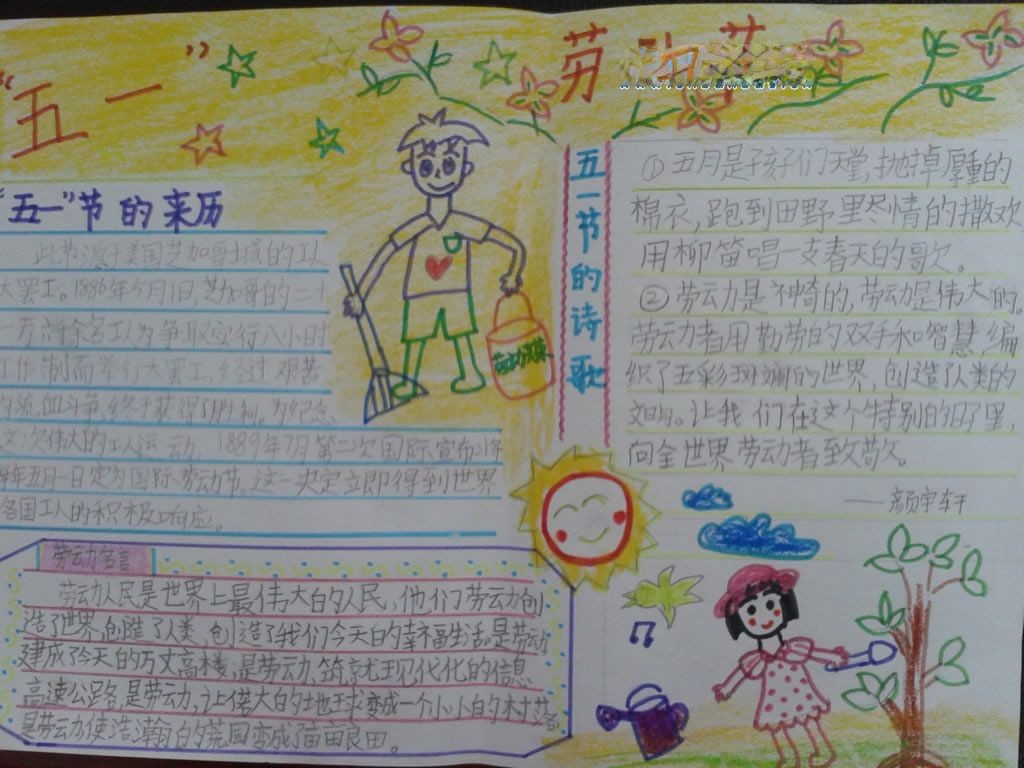 “五一”
劳动节
“五一”节的来历
此节源于美国芝加哥城的工人
大罢工。1886年5月1日,芝加哥的二十
一万六千余名工人为争取实行八小时
工作制而举行大罢工,经过艰苦
的流血斗争,终于获得了胜利。为纪念
这次伟大的工人运动,1889年7月第二次国际宣布将
每年五月一日定为国际劳动节。这一决定立即得到世界
各国工人的积极响应。
劳动名言
劳动人民是世界上最伟大的人民,他们劳动创
造了世界,创造了人类,创造了我们今天的幸福生活。是劳动
建成了今天的万丈高楼;是劳动,筑就现代化的信息
高速公路;是劳动,让偌大的地球变成一个小小的村落;
是劳动使浩瀚的荒园变成了亩亩良田。
五一节的诗歌
①五月是孩子们天堂,抛掉厚重的
棉衣,跑到田野里尽情的撒欢
用柳笛唱一支春天的歌。
②劳动是神奇的,劳动是伟大的。
劳动者用勤劳的双手和智慧,编
织了五彩斑斓的世界,创造了人类的
文明。让我们在这个特别的日子里,
向全世界劳动者致敬。
——颜宇轩